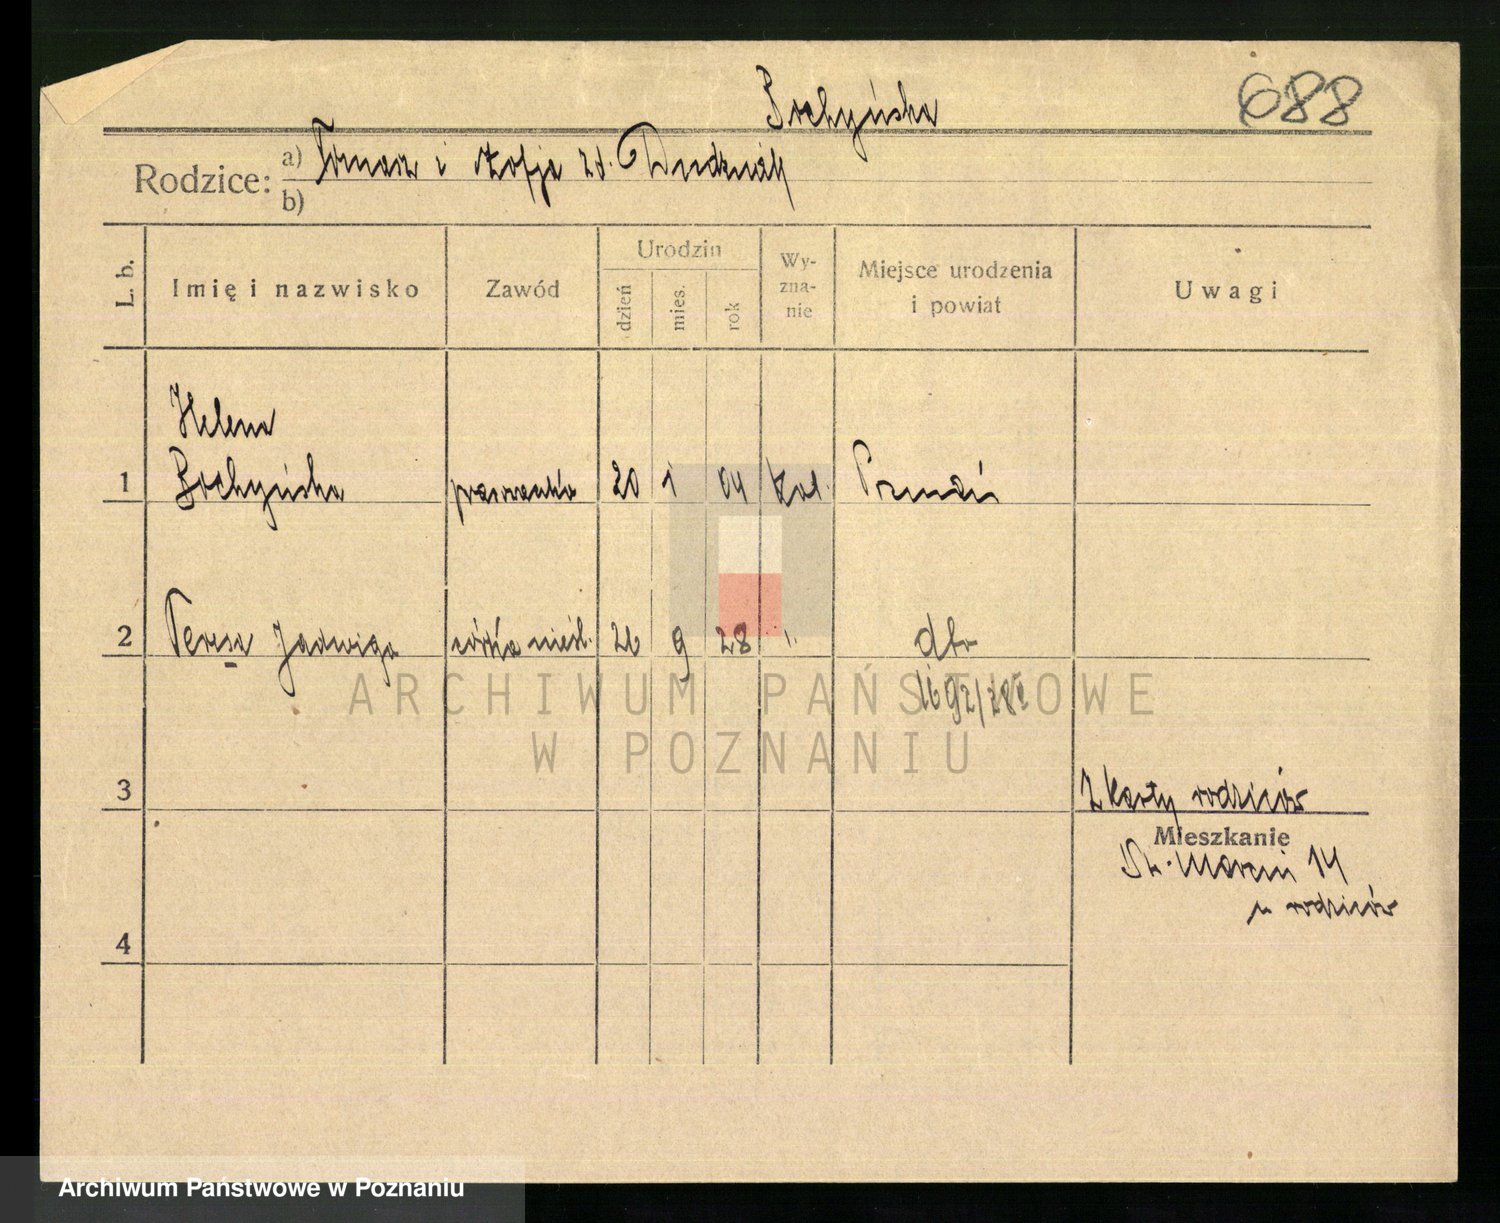 Bochyńska
688
Rodzice: a) Tomasz i Zofja zd. Dudziak
b)
L. b.
Imię i nazwisko
Zawód
Urodzin
dzień
mies.
rok
Wy-
zna-
nie
Miejsce urodzenia
i powiat
Uwagi
Helena
1 Bochyńska pracownica 20 1 04 kat. Poznań
2 Teresa Jadwiga córka nieśl. 26 9 28 " dto
ARCHIWUM PAŃSTWOWE
W POZNANIU
3
Z karty rodziców
Mieszkanie
Św. Marcin 14
u rodziców
4
Archiwum Państwowe w Poznaniu